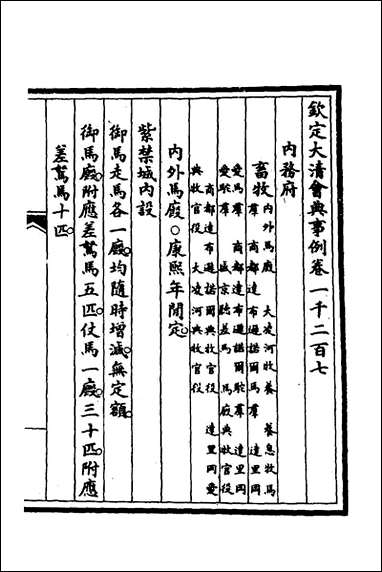 欽定大清會典事例卷一千二百七
內務府
畜牧 內外馬廠 大凌河牧養 養息牧馬
羣 商都達布遜諾爾馬羣 達里岡
愛馬羣 商都達布遜諾爾駝羣 達里岡
愛駝羣 盛京騍差馬 馬廠典牧官役
商都達布遜諾爾典牧官役 達里岡愛
典牧官役 大凌河典牧官役
內外馬廄○康熙年閒定
紫禁城內設
御馬走馬各一廄均隨時增減無定額
御馬廄附應差駑馬五匹仗馬一廄三十匹附應
差駑馬十匹